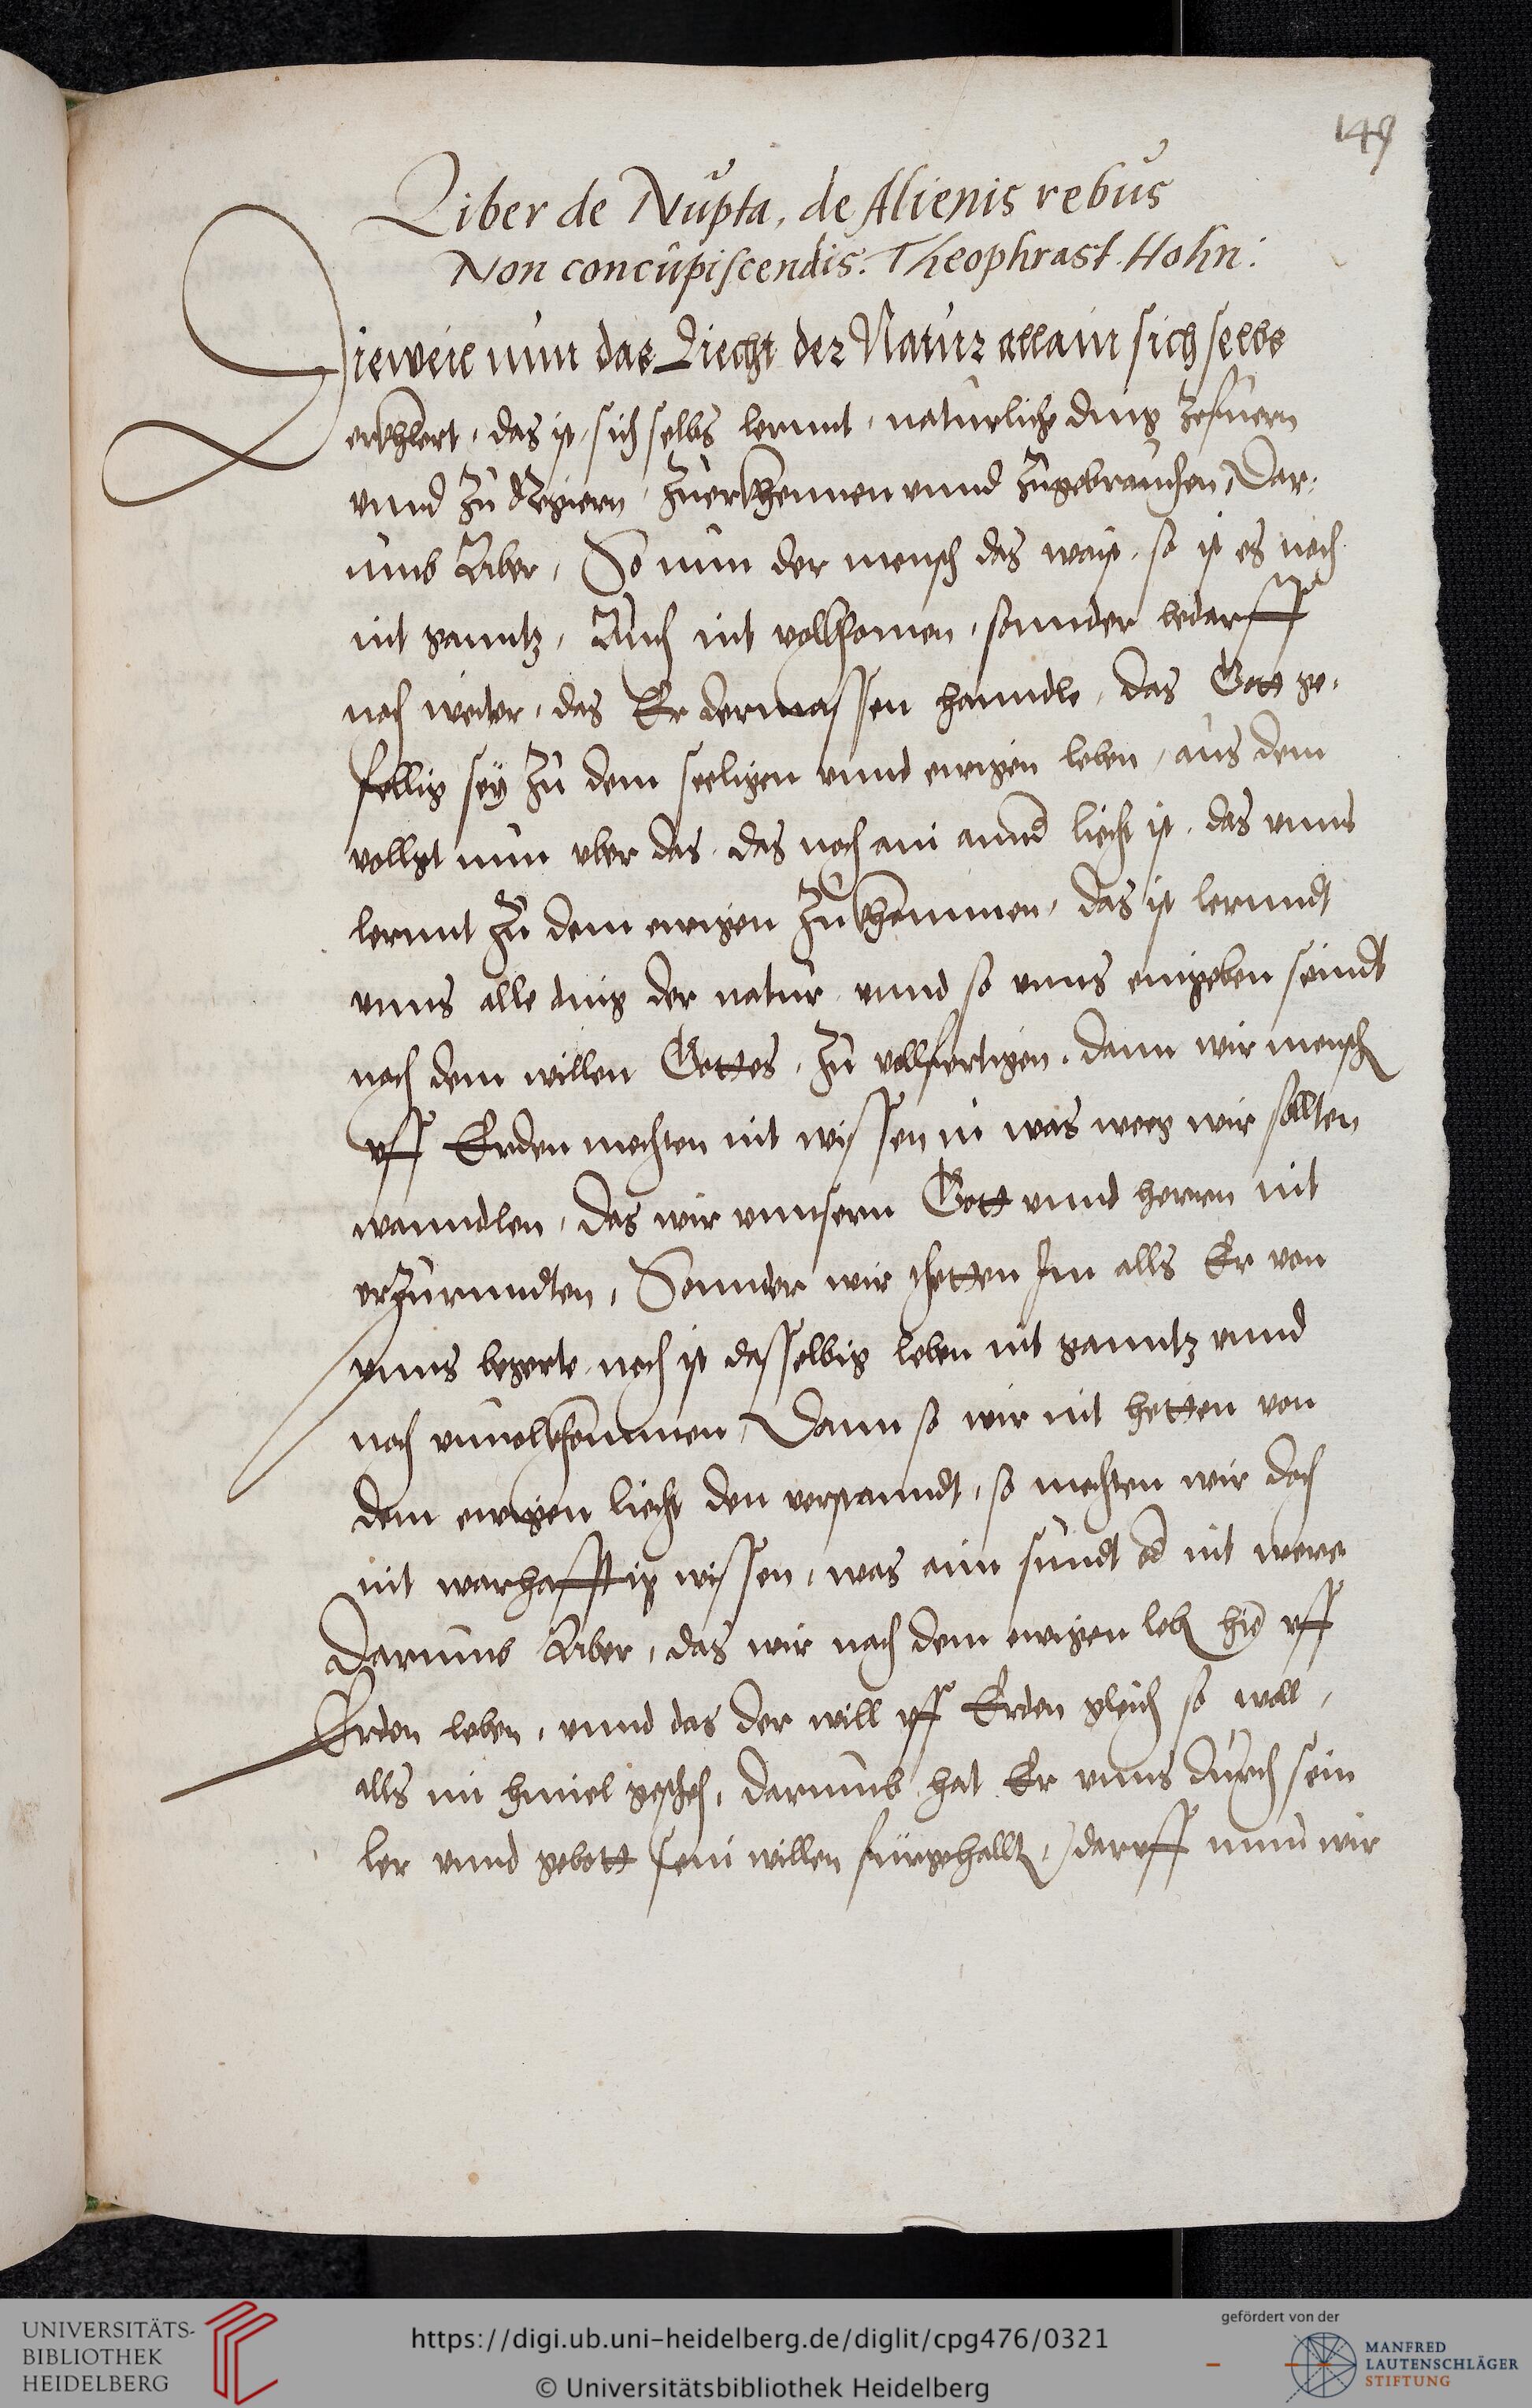 149
Liber de Nupta, de Alienis rebus
Non concupiscendis. Theophrast. Hohn:
Dieweil nun das Liecht der Natur allain sich selbs
erkhlert, das ist sich selbs lernnt, naturliche ding zefuern
vnnd zu Regiern, zuerkhennen vnnd zugebrauchen, Dar-
umb Aber, So nun der mensch das waist, so ist es noch
nit ganntz, Auch nit vollkomen, sonnder bedarff
noch weiter, das Er dermassen hanndle, das Gott ge-
fellig sey zu dem seeligen vnnd ewigen leben, aus dem
vollgt nun vber das, das noch ain annd liecht ist, das vnns
lernnt zu dem ewigen zukhommen, das ist lernndt
vnns alle ding der natur vnnd so vnns eingeben seindt
nach dem willen Gottes, zu vollfertigen, dann wir mensch
vff Erden mechten nit wissen in was weeg wir sollten
wanndlen, das wir vnnsern Gott vnnd herren nit
erzurnndten, Sonnder wir thetten Im alls Er von
vnns begerte, noch ist dasselbig leben nit ganntz vnnd
noch vnuolkhommen, Dann so wir nit hetten von
dem ewigen liecht den verstanndt, so mechten wir doch
nit warhafftig wissen, was ain sundt od nit were
Darumb Aber, das wir nach dem ewigen leb hie vff
Erden leben, vnnd das der will vff Erden gleich so woll,
alls im himel gescheh, darumb hat Er vnns durch sein
ler vnnd gebott sein willen fürgehallt, daruff nun wir
UNIVERSITÄTS-
BIBLIOTHEK
HEIDELBERG
https://digi.ub.uni-heidelberg.de/diglit/cpg476/0321
© Universitätsbibliothek Heidelberg
gefördert von der
MANFRED
LAUTENSCHLÄGER
STIFTUNG